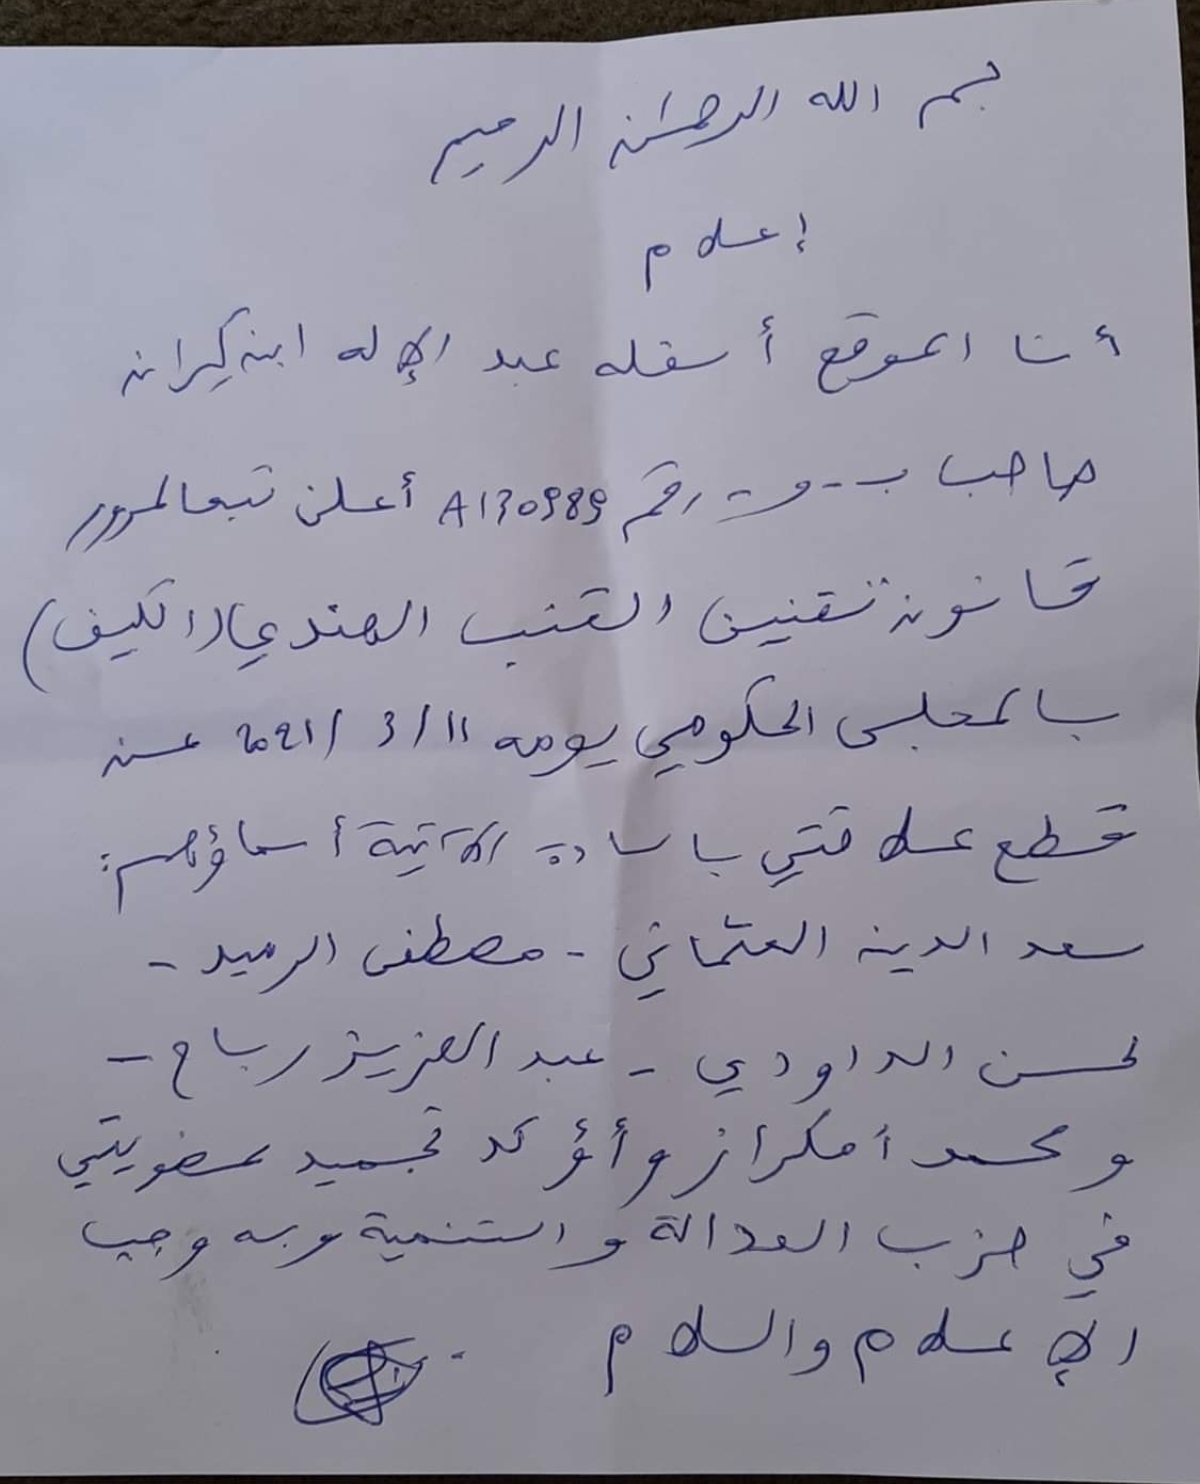 بسم الله الرحمان الرحيم
إعلام
أنا الموقع أسفله عبد الإله ابن كيران
صاحب ب-و- رقم A130989 أعلن تبعا لمرور
قانون تقنين القنب الهندي (الكيف)
بالمجلس الحكومي يومه 11/ 3/ 2021 عن
قطع علاقتي بالسادة الآتية أسماؤهم:
سعد الدين العثماني - مصطفى الرميد -
لحسن الداودي - عبد العزيز رباح -
و محمد أمكراز وأؤكد تجميد عضويتي
في حزب العدالة والتنمية وبه وجب
الإعلام والسلام